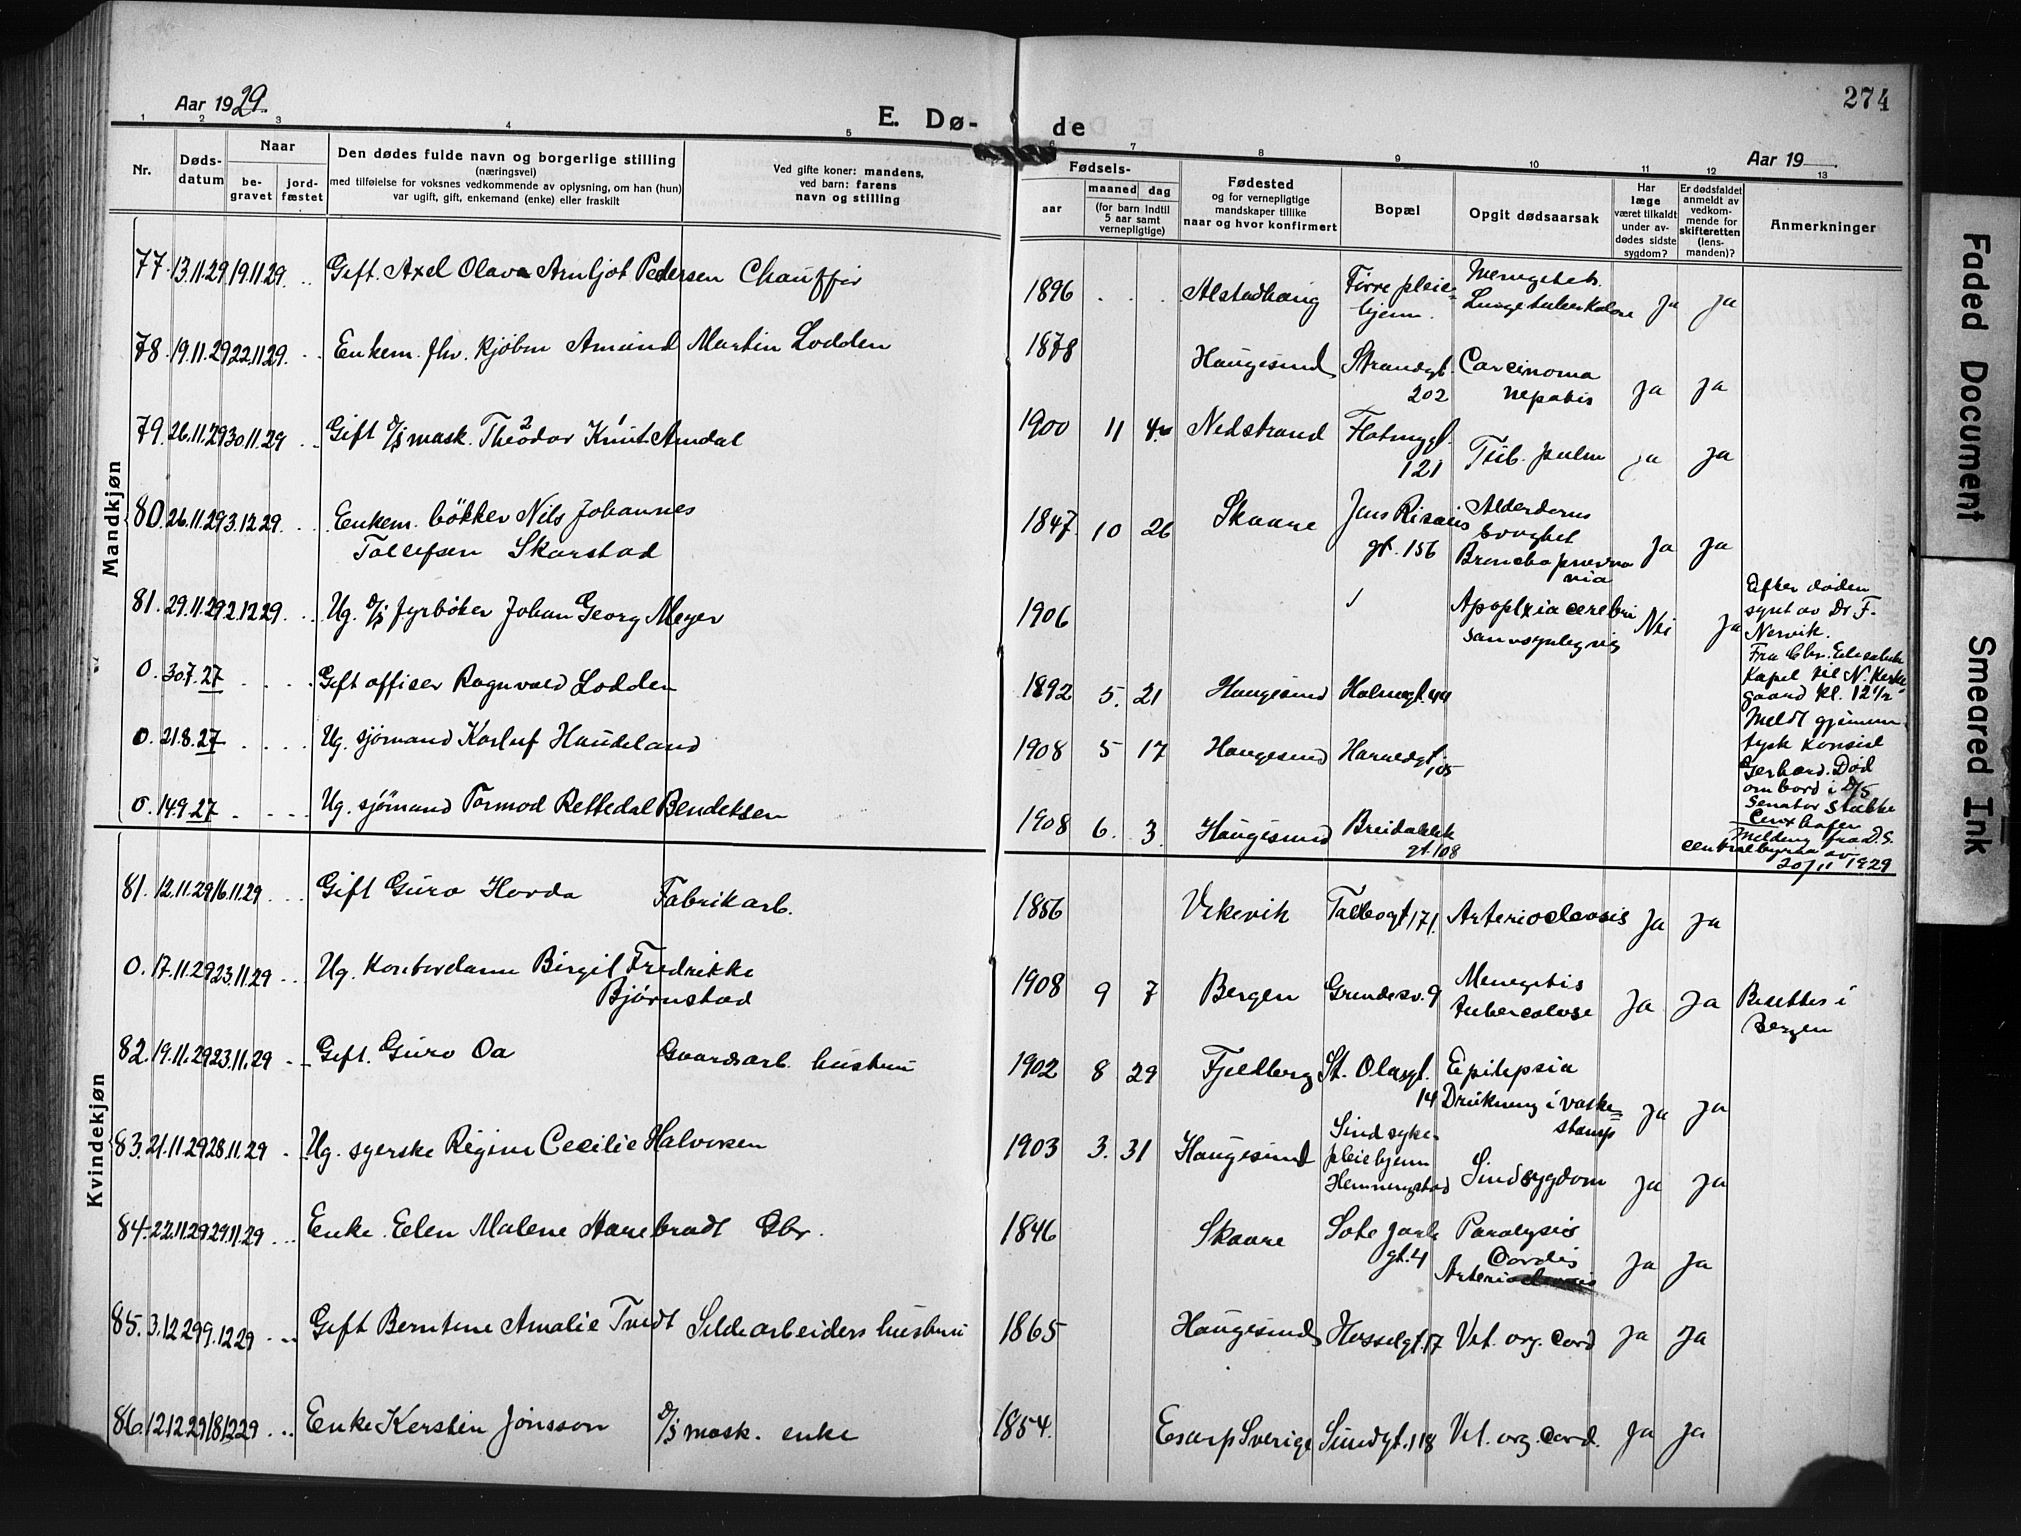 274
Aar 1929.
E. Dø-
de
Aar 19
1 2 3 4 5 6 7 8 9 10 11 12 13
Nr.
Døds-
datum
Naar
be-
gravet
jord-
fæstet
Den dødes fulde navn og borgerlige stilling
(næringsvei)
med tilføielse for voksnes vedkommende av oplysning, om han (hun)
var ugift, gift, enkemand (enke) eller fraskilt
Ved gifte koner: mandens,
ved barn: farens
navn og stilling
Fødsels-
aar
maaned dag
(for barn indtil
5 aar samt
vernepligtige)
Fødested
og for vernepligtige
mandskaper tillike
naar og hvor konfirmert
Bopæl
Opgit dødsaarsak
Har
læge
været tilkaldt
under av-
dødes sidste
sygdom?
Er dødsfaldet
anmeldt av
vedkom-
mende for
skifteretten
(lens-
manden)?
Anmerkninger
Mandkjøn
77. 13.11.29 19.11.29. Gift. Axel Olava Arnljot Pedersen Chauffør 1896 Alstadhaug Førre pleie-
hjem. Lungetuberkulose Ja Ja
78. 19.11.29 22.11.29. Enkem. fhv. kjøbm Amund Martin Lodden 1878 Haugesund Strandgt.
202 Carcinoma
hepatis Ja Ja
79. 26.11.29 30.11.29 Gift D/S mask. Theodor 2 Knut 1 Amdal 1900 11 4. Nedstrand Flotmygt.
121 Tub. pulm Ja Ja
80. 26.11.29 3.12.29. Enkem. bøkker Nils Johannes
Tollefsen Skarstad 1847 10 26 Skaare Jens Risøens
gt. 156 Alderdoms
svaghet
Bronchopneumo
nia Ja Ja
81. 29.11.29 2.12.29. Ug. D/S fyrbøter Johan Georg Meyer 1906 Apoplexia cerebri
sannsynligvis Nei Ja
Efter døden
synt av Dr F.
Nervik.
Fra Chr. Elisabeth
Kapel til N. Kirke
gaard kl. 12 1/2
Meldt gjennem
tysk konsul
Gerhard. Død
ombord i D/S
Senator Stakke
Cuxhafen
0. 30.7.27 Gift offiser Ragnvald Lodden 1892 5. 21 Haugesund Holmegt. 44
0. 21.8.27 Ug. sjømand Karluf Haudeland 1908 5 17 Haugesund Haraldgt.
105
0. 14.9.27 Ug. sjømand Tormod Rettedal Bendiksen 1908 6. 3 Haugesund Breidablik
gt. 108
Melding fra D.S.
centralbyraa av
20/11 1929
Kvindekjøn
81. 12.11.29 16.11.29 Gift Guro Horda Fabrikarb. 1856 Vikevik Talbogt 171. Arterioclerosis Ja Ja
0. 17.11.29 23.11.29 Ug. kontordame Birgit Fredrikke
Bjørnstad 1908 9 7 Bergen Grundesv. 9 Menegitis
tuberculose Ja Ja Bisettes i
Bergen
82. 19.11.29 23.11.29 Gift. Guro Oa Gaardsarb. hustru 1902 8 29 Fjeldberg St. Olavgt.
14 Epilepsia
Drukning i vaske-
stamp Ja Ja
83. 21.11.29 28.11.29 Ug. syerske Regine Cecilie Halvorsen 1903 3. 31 Haugesund Sindsyke-
pleiehjem
Hemmingstad Sindsygdom Ja Ja
84. 22.11.29 29.11.29 Enke. Elen Malene Harebradt Gbr. 1846 Skaare Sote Jarls
gt. 4 Paralysis
Cordis
Arterioclerosis Ja Ja
85. 3.12.29 9.12.29 Gift Berntine Amalie Tvedt Sildearbeiders hustru 1865 Haugesund Hasselgt. 17 Vit. org. Cord Ja Ja
86. 12.12.29 18.12.29 Enke Kerstin Jonsson D/S mask. enke 1854. Esarp Sverige Sundgt. 118 Vit. org. Cord. Ja Ja
Faded Document
Smeared Ink